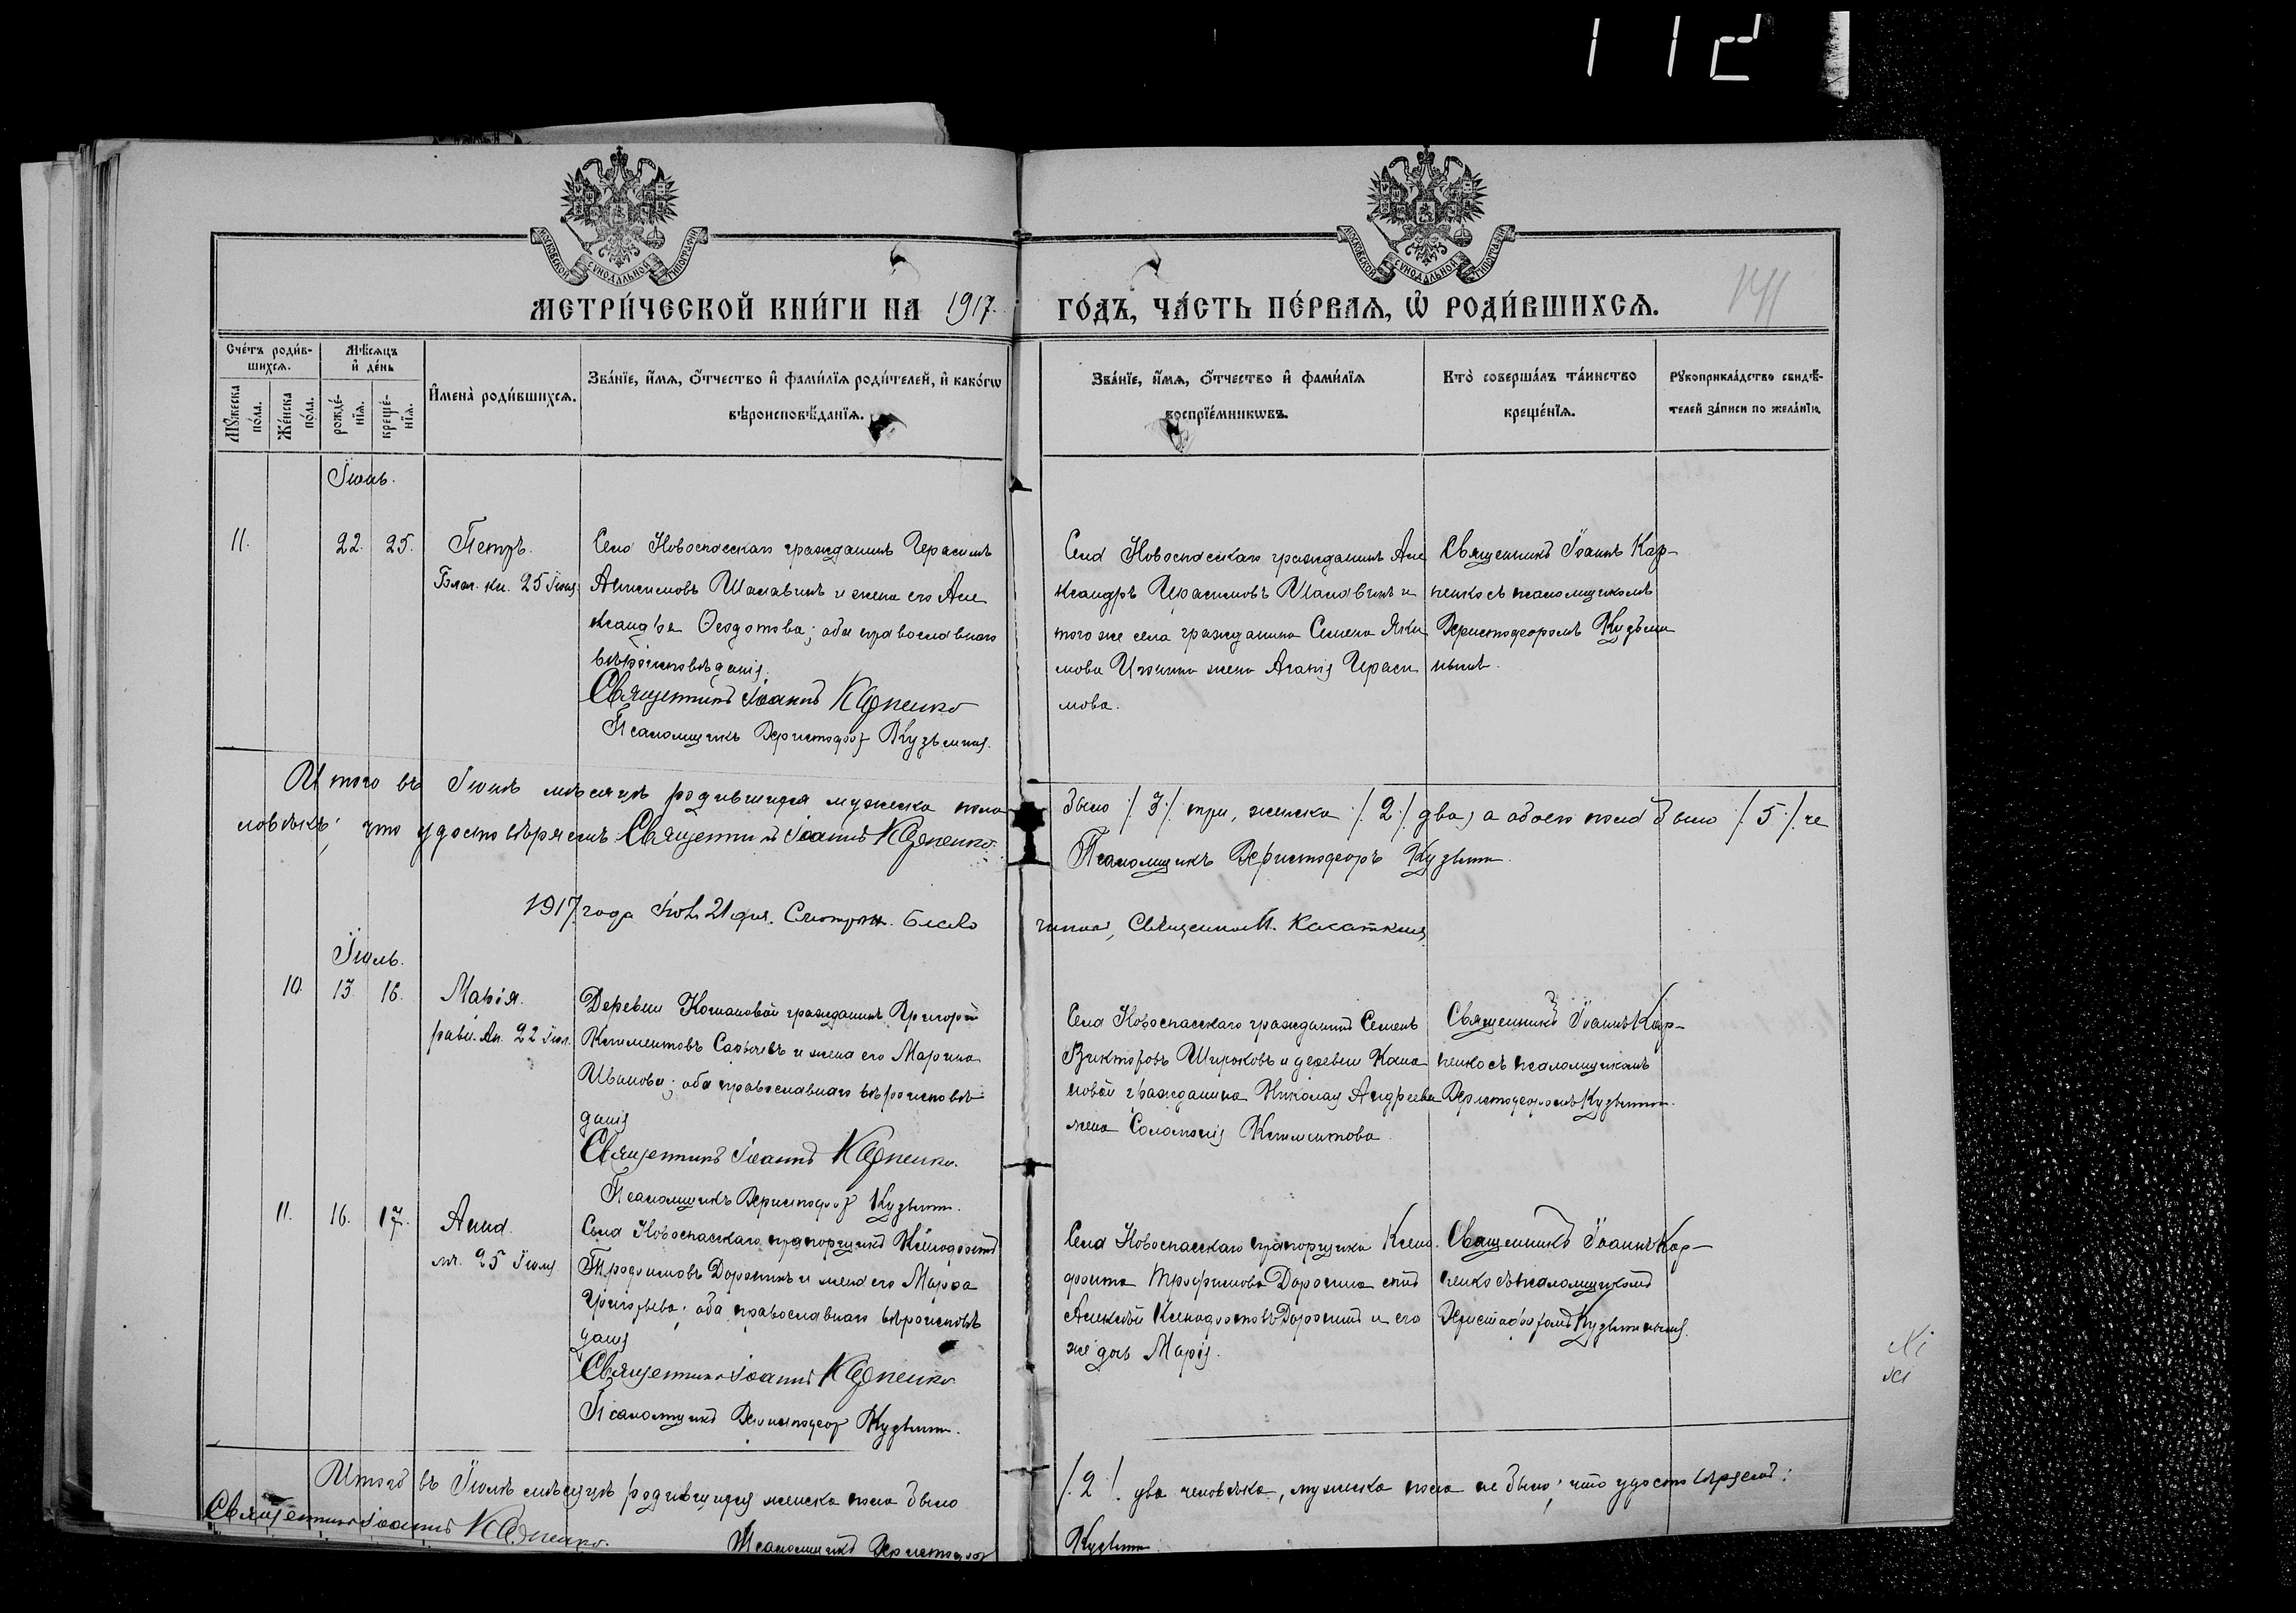 112
МОСКОВСКОЙ СѴНОДАЛЬНОЙ ТИПОГРАФІИ
МОСКОВСКОЙ СѴНОДАЛЬНОЙ ТИПОГРАФІИ
МЕТРИ́ЧЕСКОЙ КНИ́ГИ НА 1917. ГО́ДЪ, ЧА́СТЬ ПЕ́РВАѦ, Ѡ҆ РОДИ́ВШИХСѦ.
Сче́тъ роди́в-
шихсѧ.
Мѣ́сѧцъ
и҆ де́нь
Мꙋ́жеска
по́ла.
Же́нска
по́ла.
рожде́-
нїѧ.
креще́-
нїѧ.
И҆мена̀ роди́вшихсѧ.
Зва́нїе, и҆́мѧ, ѻ҆́тчество и҆ фами́лїѧ роди́телей, и҆ како́гѡ
вѣроисповѣ́данїѧ.
Зва́нїе, и҆́мѧ, ѻ҆́тчество и҆ фами́лїѧ
воспрїе́мникѡвъ.
Кто̀ соверша́лъ та́инство
креще́нїѧ.
Рꙋкоприкла́дство свидѣ́-
телей за́писи по жела́нїю.
Іюнь.
11. 22. 25. Петръ.
25 Іюня
Села Новоспасскаго гражданинъ Герасимъ
Анисимовъ Шалавинъ и жена его Але
ксандра Ѳеодотова; оба православнаго
вѣроисповѣданія.
Священникъ Іоаннъ Карпенко
Псаломщикъ Христофор Кузьминъ.
Села Новоспасскаго гражданинъ Але
ксандръ Герасимовъ Шалавинъ и
того же села гражданина Семена Яки
мова жена Агапія Гераси
мова.
Священникъ Іоаннъ Кар-
пенко съ псаломщикомъ
Христофоромъ Кузьми
нымъ.
Итого въ Іюнѣ мѣсяцѣ родившихся мужеска пола было /3/ три, женска /2/ два, а обоего пола было /5/ че
ловѣкъ; что удостовѣряемъ Священникъ Іоаннъ Карпенко.
Псаломщикъ Христофоръ Кузьмин.
1917 года 21 дня. Благо чинный, Священник И. Касаткин
Іюль.
10. 13. 16. Марія.
22 Іюл.
Деревни гражданинъ Григорій
Климентовъ и жена его Марина
Иванова; оба православнаго вѣроисповѣ
данія
Священникъ Іоаннъ Карпенко.
Псаломщикъ Христофор Кузьмин.
Села Новоспасскаго гражданинъ Семенъ
Викторовъ Широковъ и деревни
новой гражданина Николая Андреева
жена Соломонія Климентова.
Священникъ Іоаннъ Кар-
пенко съ псаломщикомъ
Христофоромъ Кузьмин.
11. 16. 17. Анна.
25 Іюля
Села Новоспасскаго прапорщикъ Ксенофонтъ
Трофимовъ Доронинъ и жена его Марѳа
Григорьева; оба православнаго вѣроисповѣ
данія
Священникъ Іоаннъ Карпенко
Псаломщикъ Христофор Кузьмин.
Села Новоспасскаго прапорщика Ксено
фонта Трофимова Доронина сынъ
Алексѣй Ксенофонтовъ Доронинъ и его
же дочь Марія.
Священникъ Іоаннъ Кар-
пенко съ псаломщикомъ
Христофоромъ Кузьминымъ.
Итого въ Іюлѣ мѣсяцѣ родившихся женска пола было /2/ два человѣка, мужеска пола не было; что удостовѣряемъ:
Священникъ Іоаннъ Карпенко.
Псаломщикъ Христофор Кузьмин.